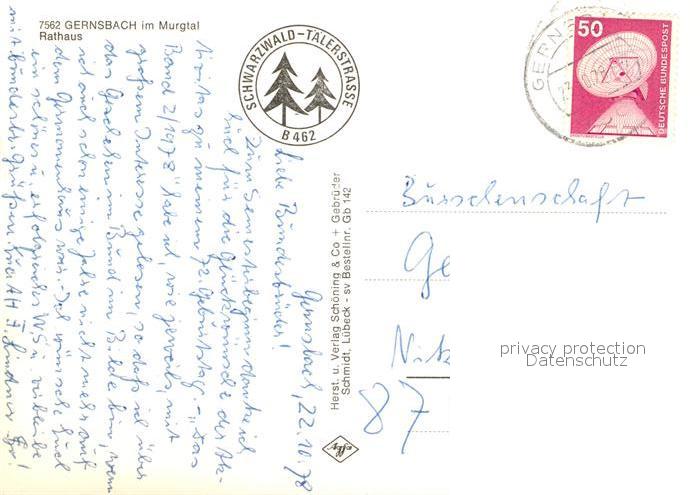 7562 GERNSBACH im Murgtal
Rathaus
SCHWARZWALD-TÄLERSTRASSE
B 462
GERN
50
DEUTSCHE BUNDESPOST
Gernsbach, 22.10.78
Liebe Bundesbrüder!
Zum Semesterbeginn danke ich
Euch für die Glückwünsche der Ak-
tivitas zu meinem 72. Geburtstag. – Das
Band 2/1978 habe ich, wie jeweils, mit
großem Interesse gelesen, so daß ich über
das Geschehen im Bund im Bilde bin, wenn
ich auch schon einige Jahre nicht mehr auf
dem Germanenhaus war. – Ich wünsche Euch
ein schönes u. erfolgreiches WS u. verbleibe
mit bundesbr. Grüßen, Eu AH
Herst. u. Verlag Schöning & Co + Gebrüder
Schmidt, Lübeck - sv Bestellnr. Gb 142
Burschenschaft
Ge
Nit
87
privacy protection
Datenschutz